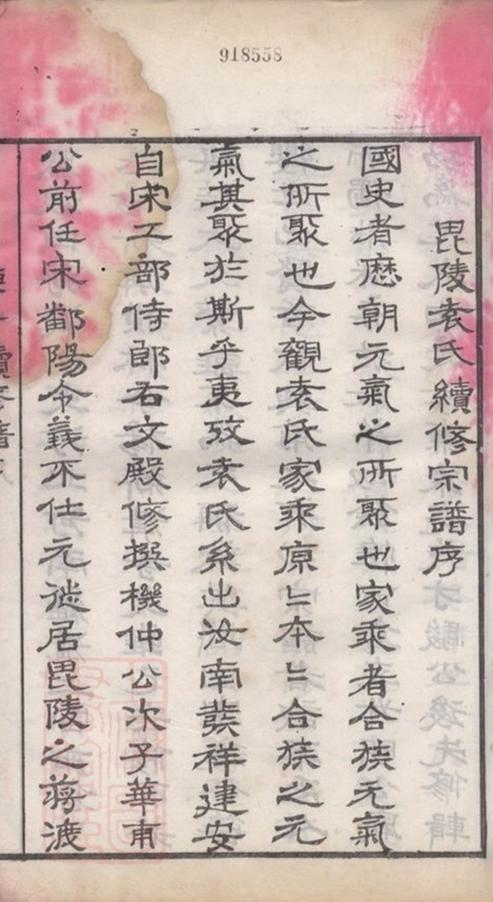 918558
毘陵袁氏續修宗譜序
國史者歷朝元氣之所聚也家乘者合族元氣
之所聚也今觀袁氏家乘原〻本〻合族之元
氣其聚於斯乎夷攷袁氏系出汝南發祥建安
自宋工部侍郎右文殿修撰機仲公次子華甫
公前任宋鄱陽令義不仕元徙居毘陵之蔣渡